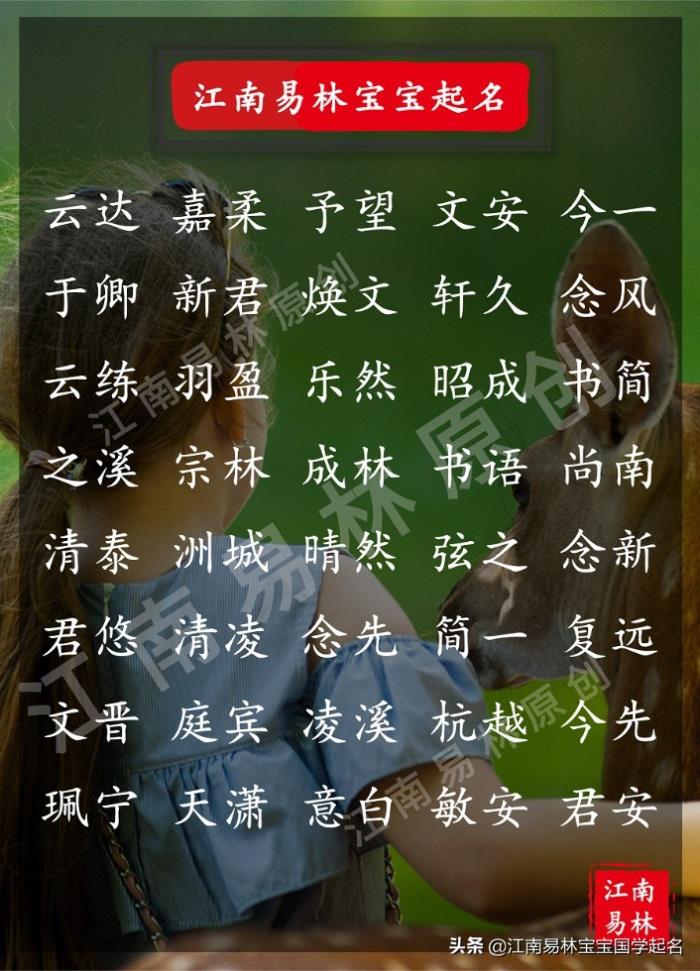 江南易林宝宝起名
云达 嘉柔 予望 文安 今一
于卿 新君 焕文 轩久 念风
云练 羽盈 乐然 昭成 书简
之溪 宗林 成林 书语 尚南
清泰 洲城 晴然 弦之 念新
君悠 清凌 念先 简一 复远
文晋 庭宾 凌溪 杭越 今先
珮宁 天潇 意白 敏安 君安
江南易林原创
江南易林原创
江南易林原创
江南
易林
头条 @江南易林宝宝国学起名